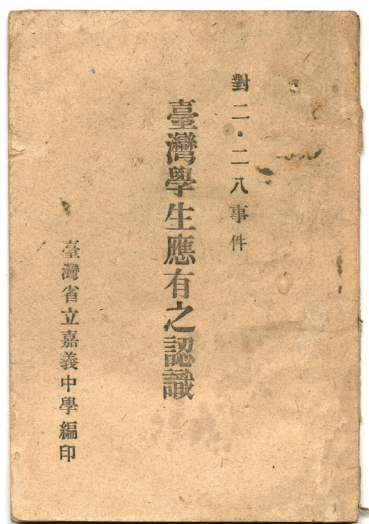 對二·二八事件
臺灣學生應有之認識
臺灣省立嘉義中學編印